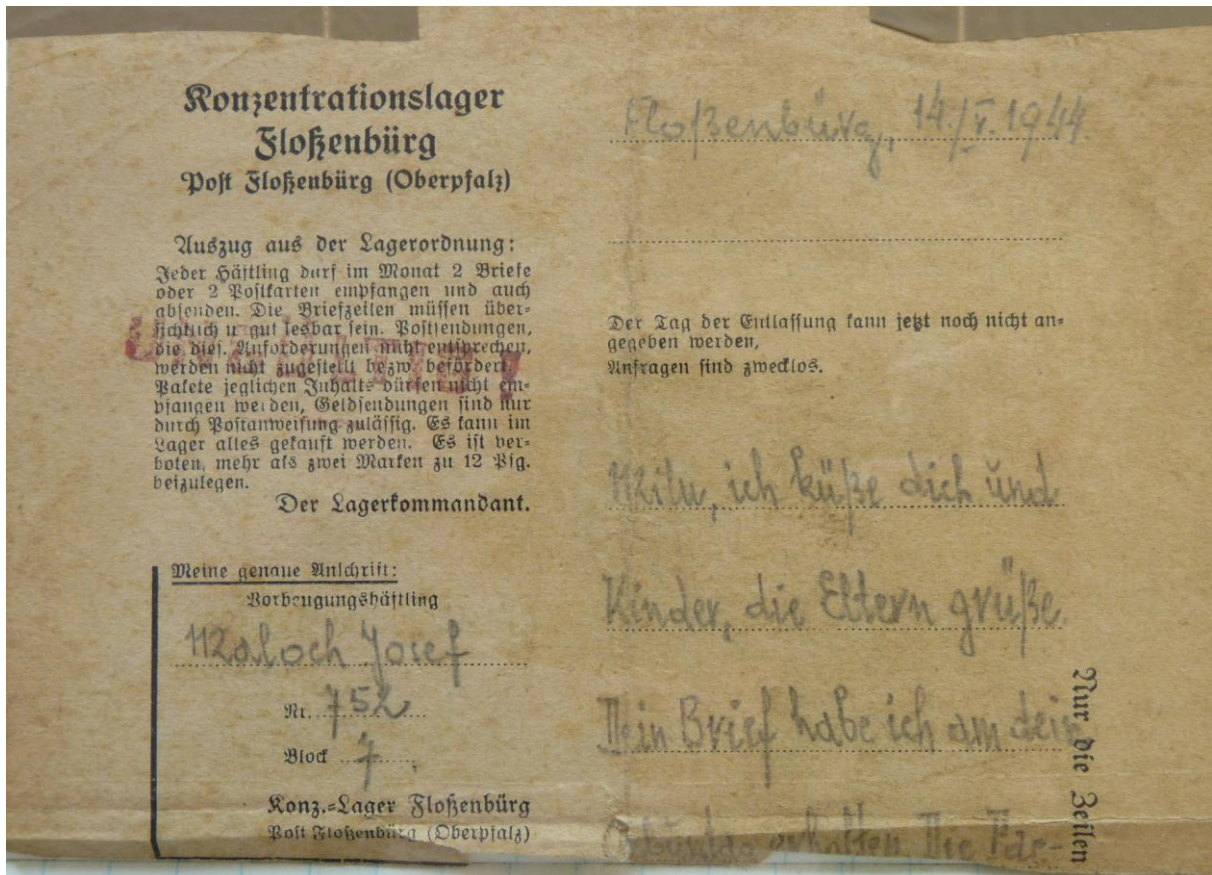 Konzentrationslager
Floßenbürg
Post Floßenbürg (Oberpfalz)
Auszug aus der Lagerordnung:
Jeder Häftling darf im Monat 2 Briefe
oder 2 Postkarten empfangen und auch
absenden. Die Briefzeilen müssen über-
sichtlich u gut lesbar sein. Postsendungen,
die dies. Anforderungen nicht entsprechen,
werden nicht zugestellt bezw. befördert.
Pakete jeglichen Inhalts dürfen nicht em-
pfangen werden, Geldsendungen sind nur
durch Postanweisung zulässig. Es kann im
Lager alles gekauft werden. Es ist ver-
boten, mehr als zwei Marken zu 12 Pfg.
beizulegen.
Der Lagerkommandant.
Meine genaue Anschrift:
Vorbeugungshäftling
Maloch Josef
Nr. 752
Block 7
Konz.-Lager Floßenbürg
Post Floßenbürg (Oberpfalz)
Floßenbürg, 14./V. 1944.
Der Tag der Entlassung kann jetzt noch nicht an-
gegeben werden,
Anfragen sind zwecklos.
Milu, ich küße dich und
Kinder, die Eltern grüße.
Dein Brief habe ich am dein
erhalten. Die
Nur die Zeilen